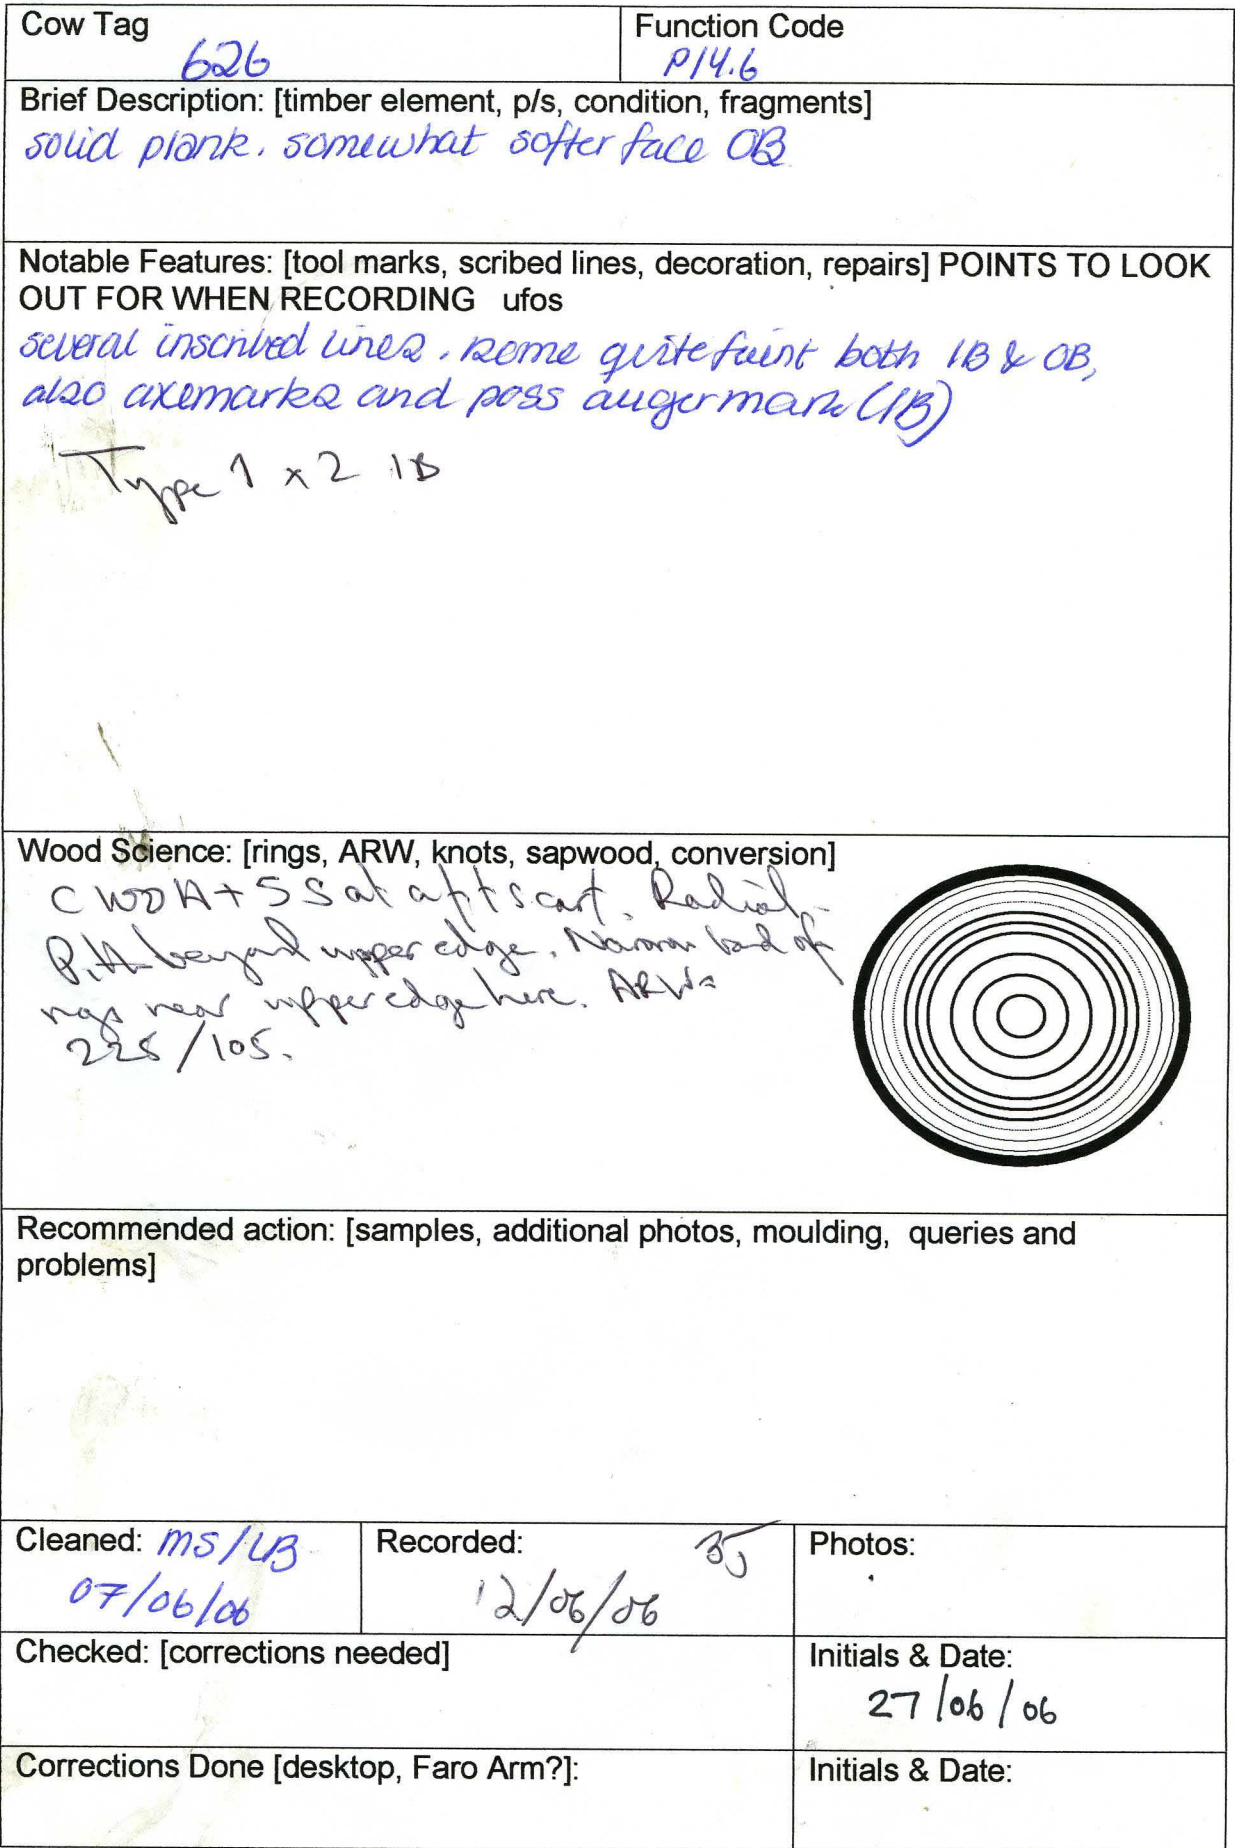 Cow Tag
626
Function Code
P14.6
Brief Description: [timber element, p/s, condition, fragments]
solid plank. somewhat softer face OB
Notable Features: [tool marks, scribed lines, decoration, repairs] POINTS TO LOOK
OUT FOR WHEN RECORDING ufos
several inscribed lines. some quite faint both IB & OB,
also axemarks and poss auger mark (IB)
Type 1 x 2 IB
Wood Science: [rings, ARW, knots, sapwood, conversion]
at aft scarf. Radial.
Pith beyond upper edge. Narrow band of
rings near upper edge here. ARW=
225/105.
Recommended action: [samples, additional photos, moulding, queries and
problems]
Cleaned: MS/LB
07/06/06
Recorded:
12/06/06
Photos:
Checked: [corrections needed]
Initials & Date:
27/06/06
Corrections Done [desktop, Faro Arm?]:
Initials & Date: